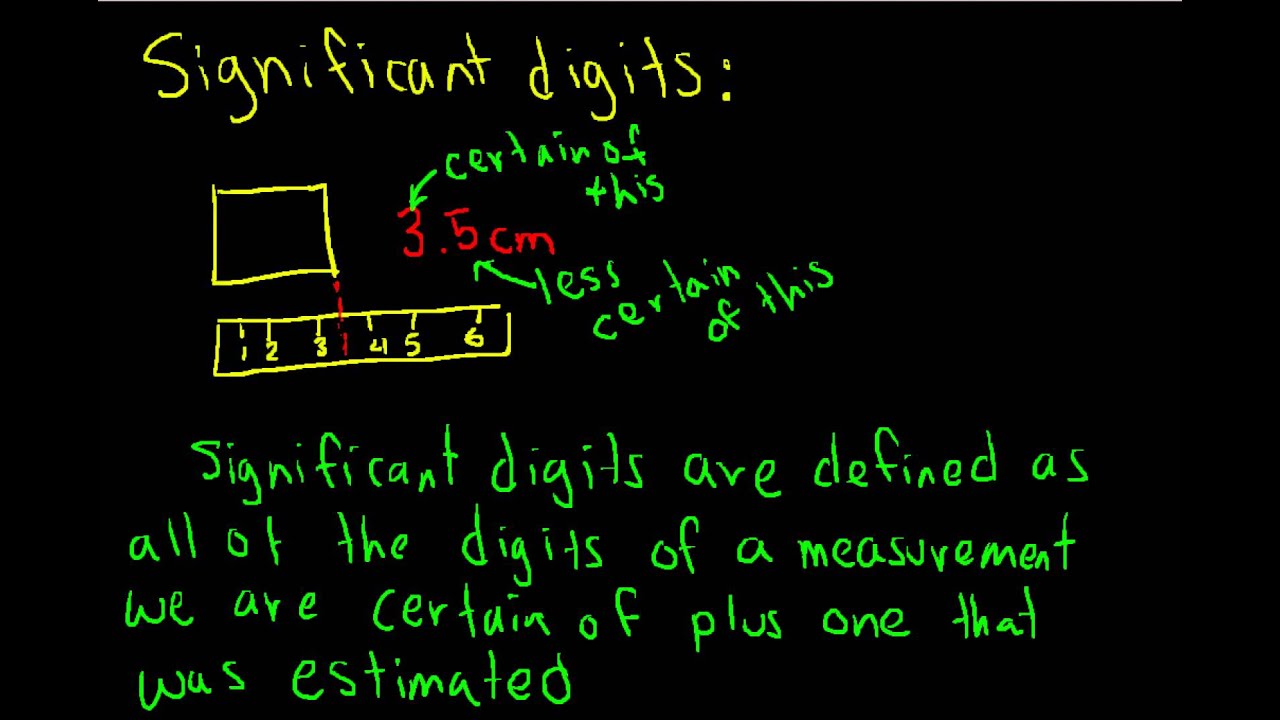 Significant digits:
certain of
this
3.5cm
less
certain
of this
1 2 3 4 5 6
Significant digits are defined as
all of the digits of a measurement
we are certain of plus one that
was estimated